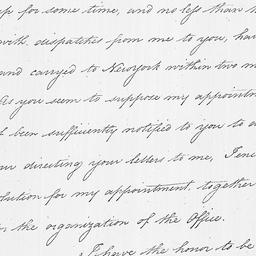 up for some time, and no less than
with dispatches from me to you, ha
and carryed to Newyork within two m
As you seem to suppose my appointm
t been sufficiently notified to you to a
our directing your letters to me, I en
olution for my appointment together
r the organization of the Office.
I have the honor to be